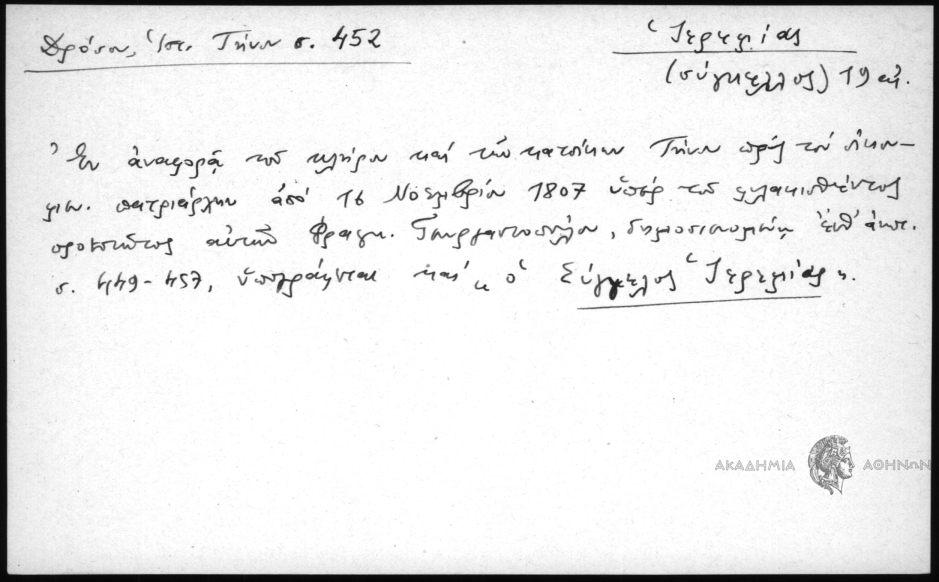 Δρόσου, Ἱστ. Τήνου σ. 452
Ἱερεμίας
(σύγκελλος) 19 αἰ.
Ἐν ἀναφορᾷ τοῦ κλήρου καὶ τῶν κατοίκων Τήνου πρὸς τὸν οἰκου-
μεν. πατριάρχην ἀπὸ 16 Νοεμβρίου 1807 ὑπὲρ τοῦ φυλακισθέντος
προεστῶτος αὐτῶν Φραγκ. , δημοσιευομένῃ
σ. 449-457, ὑπογράφεται καὶ "ὁ Σύγκελος Ἱερεμίας".
ΑΚΑΔΗΜΙΑ ΑΘΗΝΩΝ